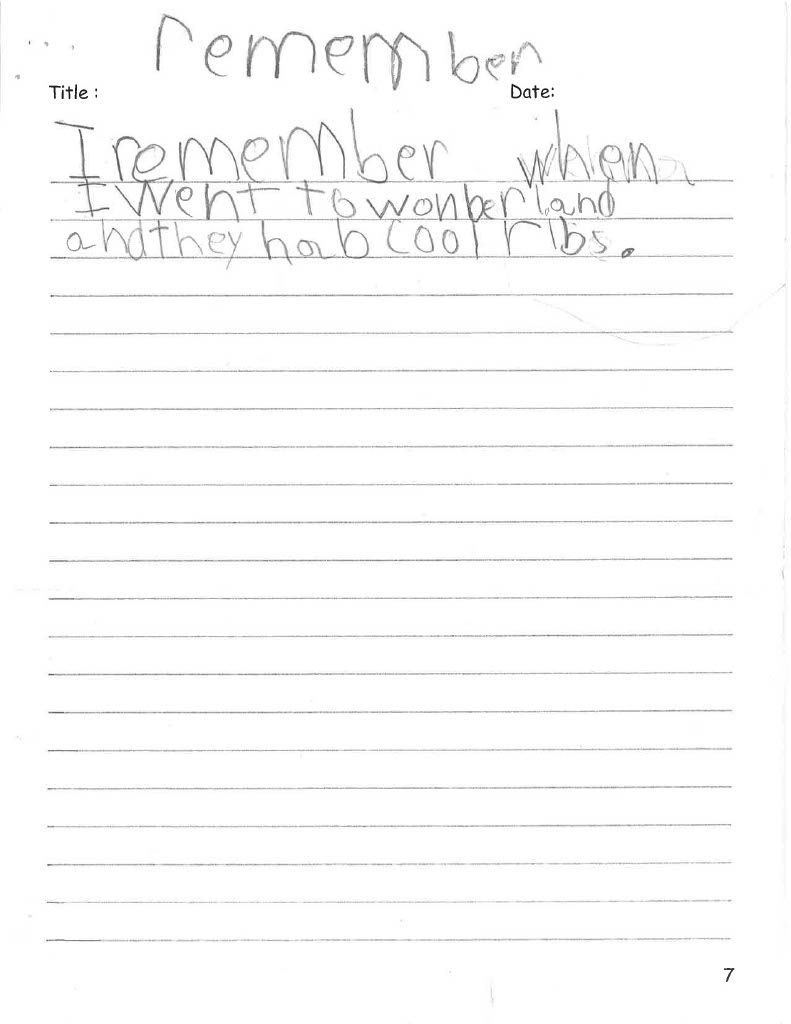 remember
Title : Date:
I remember when
I went to wonberland
and they hab cool ribs.
7